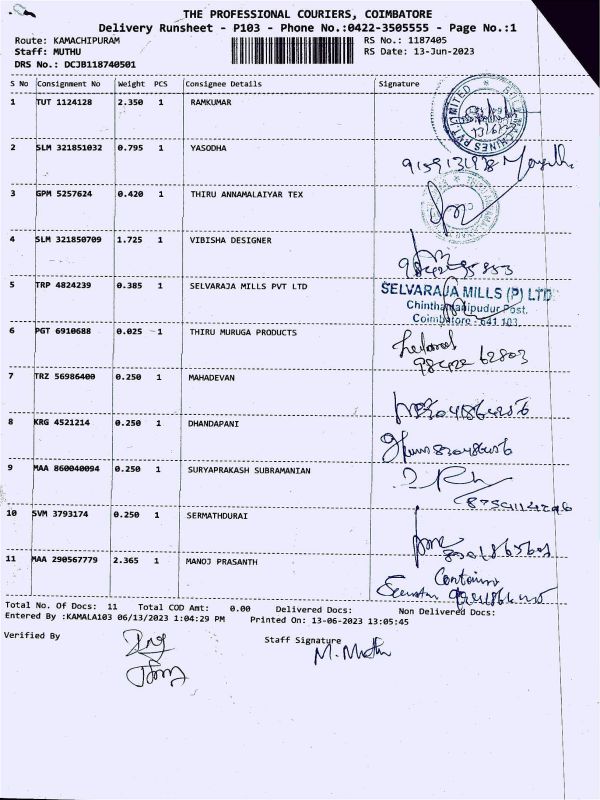 THE PROFESSIONAL COURIERS, COIMBATORE
Delivery Runsheet - P103 - Phone No.:0422-3505555 - Page No.:1
Route: KAMACHIPURAM RS No.: 1187405
Staff: MUTHU RS Date: 13-Jun-2023
DRS No.: DCJB118740501
S No Consignment No Weight PCS Consignee Details Signature
1 TUT 1124128 2.350 1 RAMKUMAR
2 SLM 321851032 0.795 1 YASODHA
3 GPM 5257624 0.420 1 THIRU ANNAMALAIYAR TEX
4 SLM 321850709 1.725 1 VIBISHA DESIGNER
5 TRP 4824239 0.385 1 SELVARAJA MILLS PVT LTD SELVARAJA MILLS (P) LTD
Chinthamanipudur Post,
Coimbatore - 641 103
6 PGT 6910688 0.025 1 THIRU MURUGA PRODUCTS
98422 62803
7 TRZ 56986400 0.250 1 MAHADEVAN
8 KRG 4521214 0.250 1 DHANDAPANI
9 MAA 860040094 0.250 1 SURYAPRAKASH SUBRAMANIAN
10 SVM 3793174 0.250 1 SERMATHDURAI
11 MAA 290567779 2.365 1 MANOJ PRASANTH
Total No. Of Docs: 11 Total COD Amt: 0.00 Delivered Docs: Non Delivered Docs:
Entered By :KAMALA103 06/13/2023 1:04:29 PM Printed On: 13-06-2023 13:05:45
Verified By Staff Signature
M. Muthu